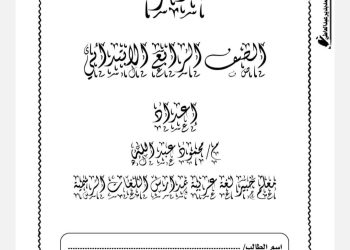 الصف الرابع الابتدائي
إعداد
م/ محمود عبد الله
معلم خبير لغة عربية بمدارس اللغات الرسمية
اسم الطالب/ ........................................................